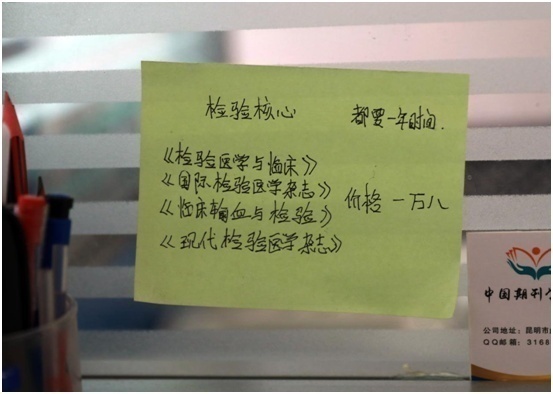 检验核心 都要一年时间.
《检验医学与临床》
《国际检验医学杂志》
《临床输血与检验》 价格 一万八
《现代检验医学杂志》
中国期刊
公司地址：昆明市
QQ邮箱：3168